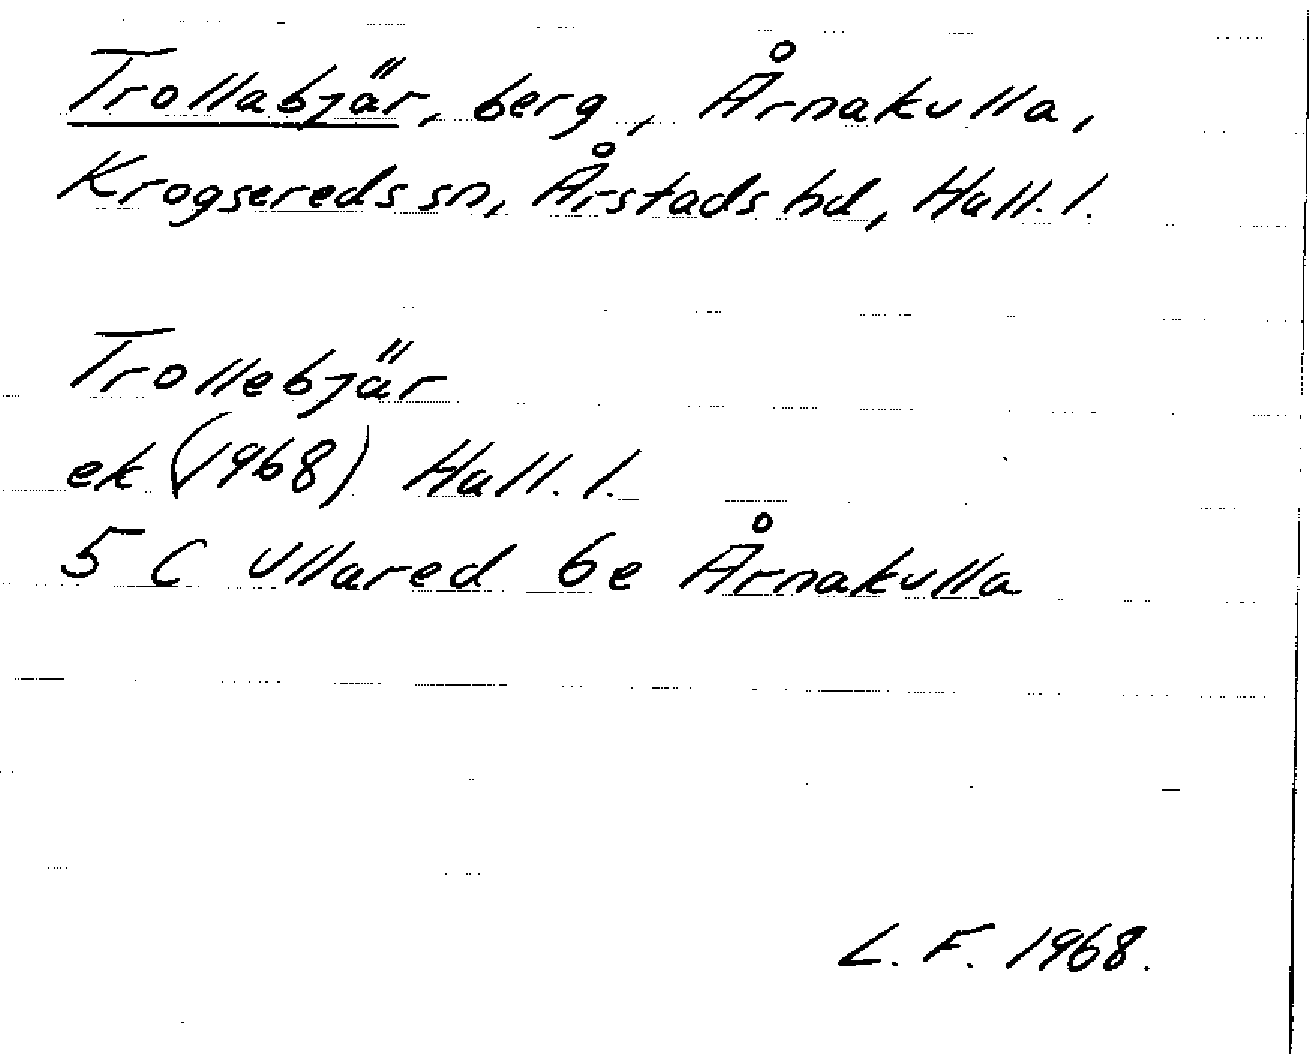 Trollabjär, berg, Årnakulla,
Krogsereds sn, Årstads hd, Hall. l.
Trollebjär
ek (1968) Hall. l.
5 C Ullared 6e Årnakulla
L. F. 1968.